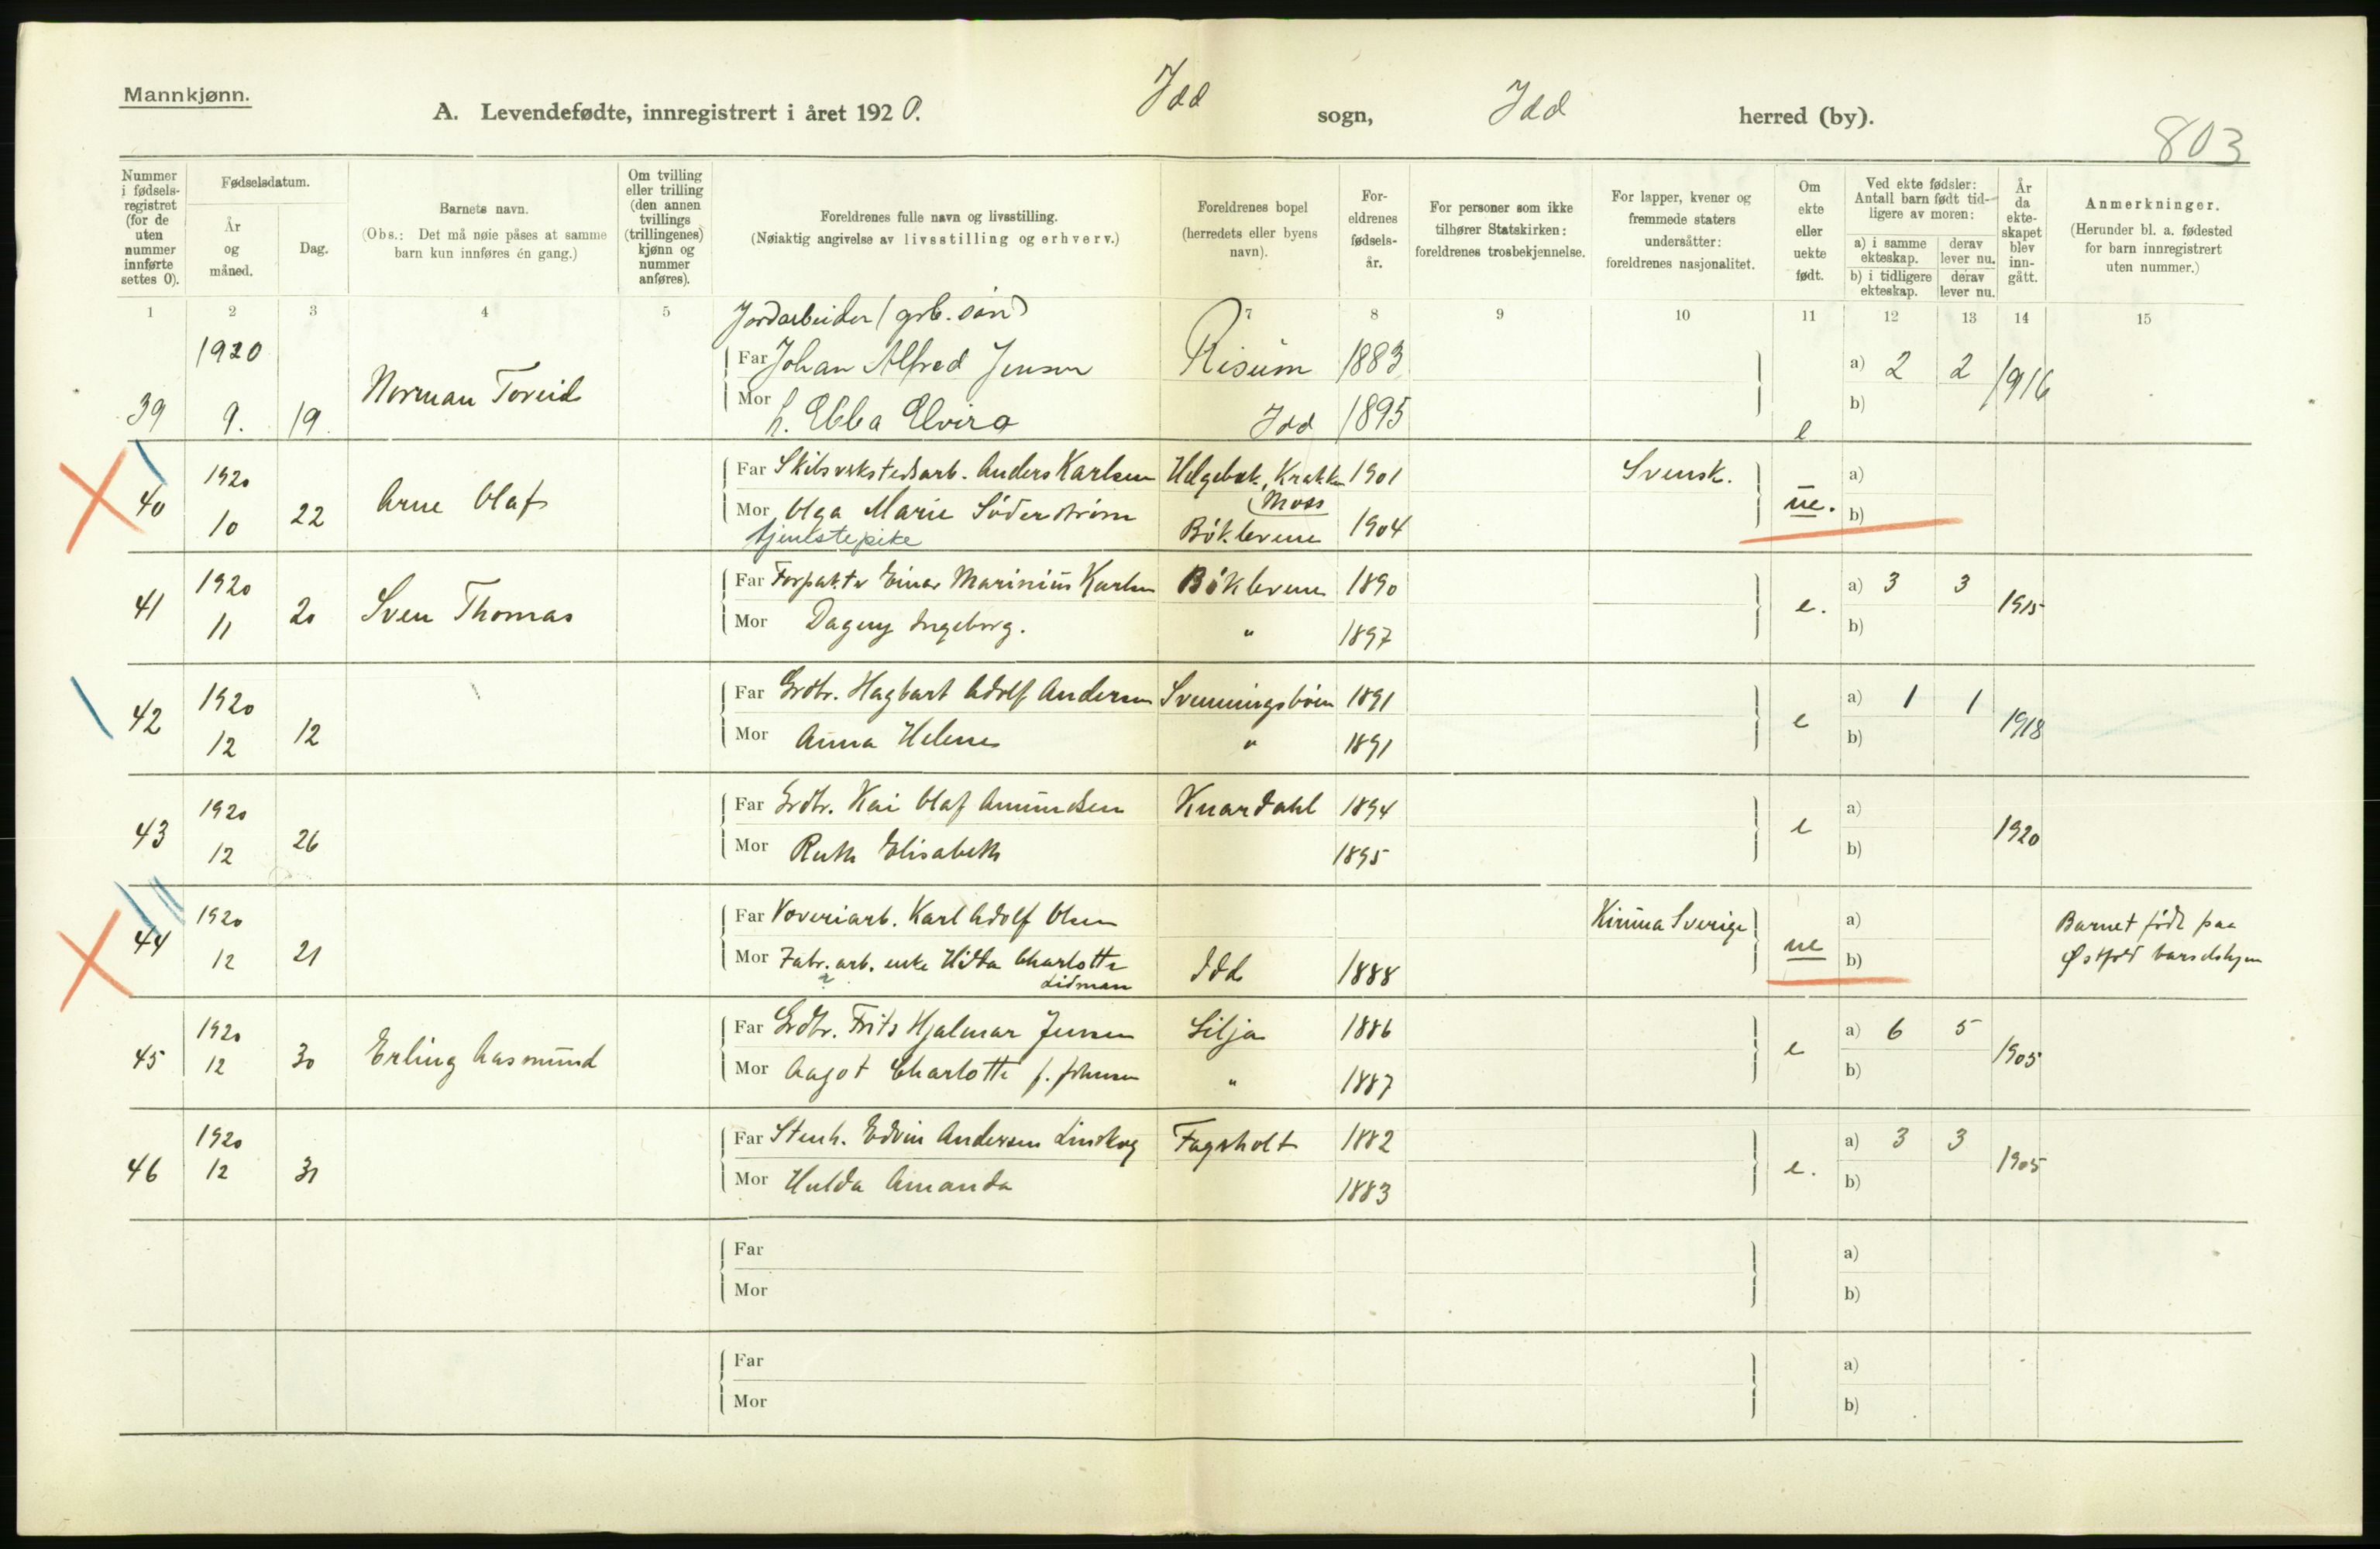 Mannkjønn.
A. Levendefødte, innregistrert i året 1920. Idd sogn, Idd herred (by).
803
Nummer i fødsels- registret (for de uten nummer innførte settes 0).
Fødselsdatum.
År og måned.
Dag.
Barnets navn.
(Obs.: Det må nøie påses at samme barn kun innføres én gang.)
Om tvilling eller trilling (den annen tvillings (trillingenes) kjønn og nummer anføres).
Foreldrenes fulle navn og livsstilling.
(Nøiaktig angivelse av livsstilling og erhverv.)
Foreldrenes bopel (herredets eller byens navn).
For- eldrenes fødsels- år.
For personer som ikke tilhører Statskirken: foreldrenes trosbekjennelse.
For lapper, kvener og fremmede staters undersåtter: foreldrenes nasjonalitet.
Om ekte eller uekte født.
Ved ekte fødsler: Antall barn født tid- ligere av moren:
a) i samme ekteskap.
derav lever nu.
b) i tidligere ekteskap.
derav lever nu.
År da ekte- skapet blev inn- gått.
Anmerkninger.
(Herunder bl. a. fødested for barn innregistrert uten nummer.)
1 2 3 4 5 7 8 9 10 11 12 13 14 15
Jordarbeider (grb. søn)
1920 Far Johan Alfred Jensen Risum 1883 a) 2 2 1916
39 9. 19. Norman Toreid Mor h. Ebba Elvira Idd 1895 e b)
1920 Far Skibsverkstedsarb. Anders Karlsen Helgebæk, Krakke 1901 Svensk. a)
(Moss
40 10 22 Arne Olaf Mor Olga Marie Söderström Böklevene 1904 ue. b)
tjenestepike
1920 Far Forpakter Einar Marinius Karlsen Böklevene 1890 a) 3 3
41 11 20 Sven Thomas Mor Dagny Ingeborg. " 1897 e. b) 1915
1920 Far Grdbr. Hagbart Adolf Andersen Svenningsbøen 1891 a) 1 1
42 12 12 Mor Anna Helene " 1891 e b) 1918
1920 Far Grdbr. Kai Olaf Amundsen Knardahl 1894 a)
43 12 26 Mor Ruth Elisabeth 1895 e b) 1920
1920 Far Væveriarb. Karl Adolf Olsen Kiruna Sverige a) Barnet født paa
44 12 21 Mor Fabr. arb. enke Hilda Charlotte Idd 1888 ue b) Østfold barselshjem
Lidman
1920 Far Grdbr. Frits Hjalmar Jensen Lilja 1886 a) 6 5
45 12 30 Erling Aasmund Mor Aagot Charlotte f. Johnsen " 1887 e b) 1905
1920 Far Stenh. Edvin Andersen Lindskog Fagerholt 1882 a) 3 3
46 12 31 Mor Hulda Amanda 1883 e. b) 1905
Far a)
Mor b)
Far a)
Mor b)